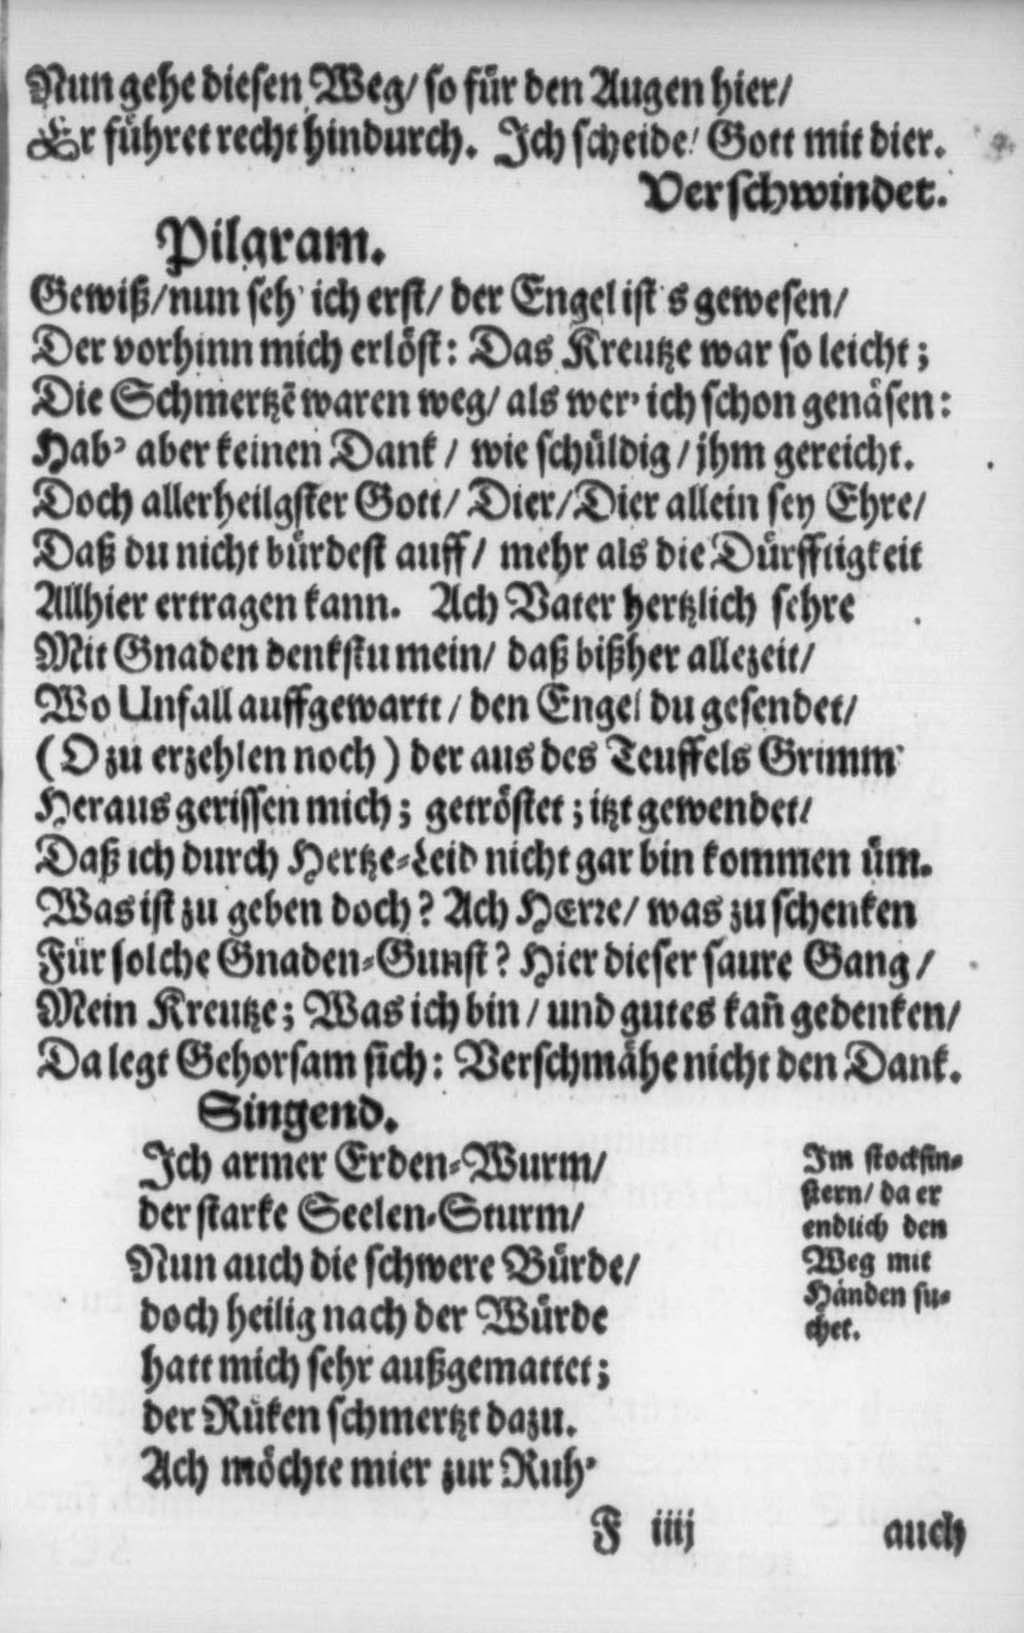 Nun gehe diesen Weg/ so für den Augen hier/
Er führet recht hindurch. Ich scheide/ Gott mit dier.
Verschwindet.
Pilgram.
Gewiß/nun seh' ich erst/ der Engel ist's gewesen/
Der vorhinn mich erlöst: Das Kreutze war so leicht;
Die Schmertzē waren weg/ als wer' ich schon genäsen:
Hab' aber keinen Dank / wie schüldig / jhm gereicht.
Doch allerheilgster Gott/ Dier/Dier allein sey Ehre/
Daß du nicht bürdest auff/ mehr als die Dürfftigkeit
Allhier ertragen kann. Ach Vater hertzlich sehre
Mit Gnaden denkstu mein/ daß bißher allezeit/
Wo Unfall auffgewartt / den Engel du gesendet/
(O zu erzehlen noch) der aus des Teuffels Grimm
Heraus gerissen mich; getröstet; itzt gewendet/
Daß ich durch Hertze-Leid nicht gar bin kommen üm.
Was ist zu geben doch? Ach HErre/ was zu schenken
Für solche Gnaden-Gunst? Hier dieser saure Gang/
Mein Kreutze; Was ich bin / und gutes kañ gedenken/
Da legt Gehorsam sich: Verschmähe nicht den Dank.
Singend.
Ich armer Erden-Wurm/
der starke Seelen-Sturm/
Nun auch die schwere Bürde/
doch heilig nach der Würde
hatt mich sehr außgemattet;
der Rüken schmertzt dazu.
Ach möchte mier zur Ruh'
Im stockfin-
stern/ da er
endlich den
Weg mit
Händen su-
chet.
F iiij auch